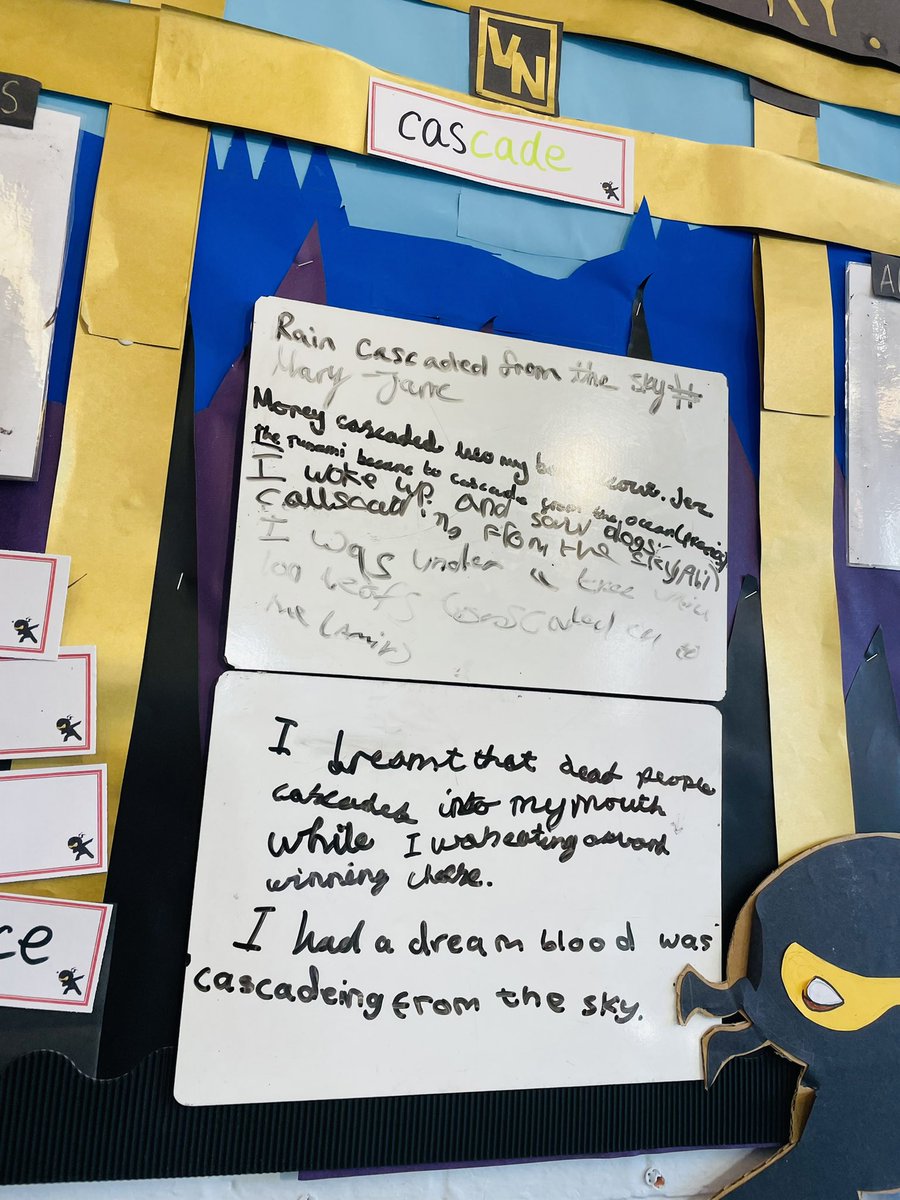 RY.
VN
S
cascade
A
Rain Cascaded from the sky
Mary Jane
Money cascaded into my Jez
the tunami became to cascade from the ocean
I woke up and saw dogs
from the sky (Ali)
I was under a tree
leafs on
me (Amir)
I dreamt that dead people
cascaded into my mouth
while I was eating award
winning cheese.
I had a dream blood was
cascadeing from the sky.
ce